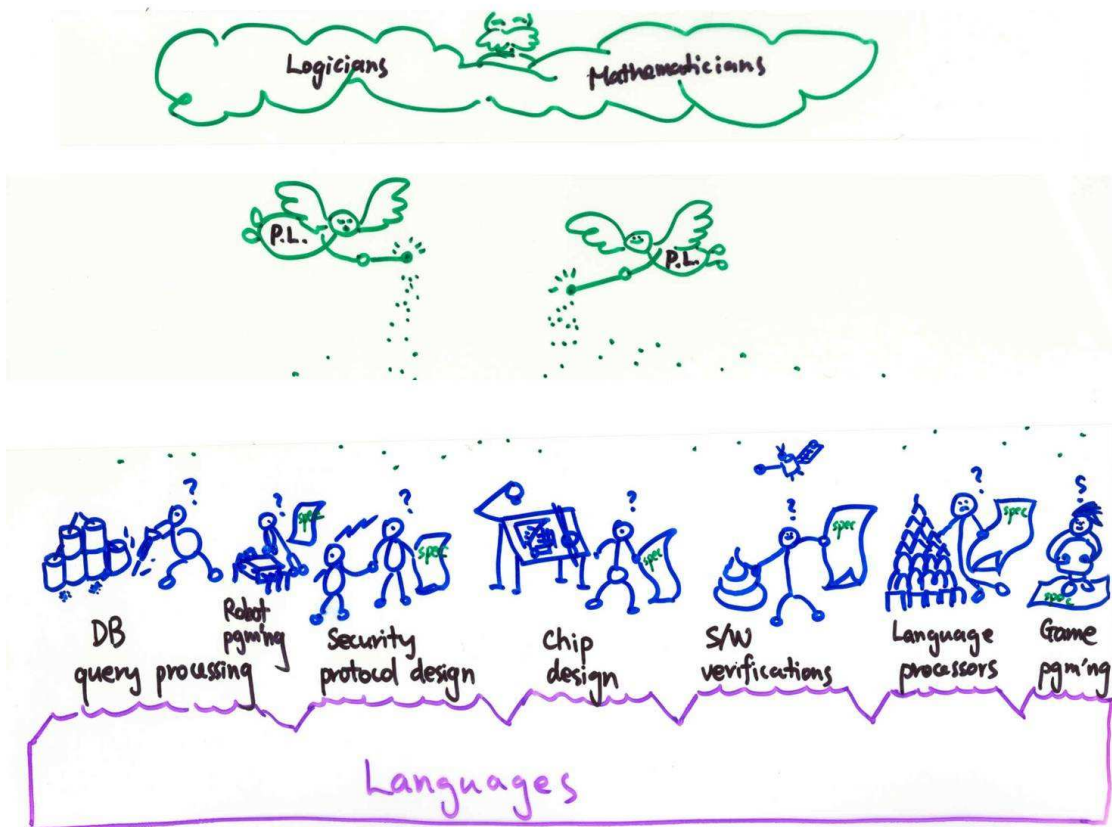 Logicians
Mathematicians
P.L.
P.L.
?
?
?
?
?
?
?
spec
spec
spec
spec
spec
spec
DB
query processing
Robot
pgm'ng
Security
protocol design
Chip
design
S/W
verifications
Language
processors
Game
pgm'ng
Languages